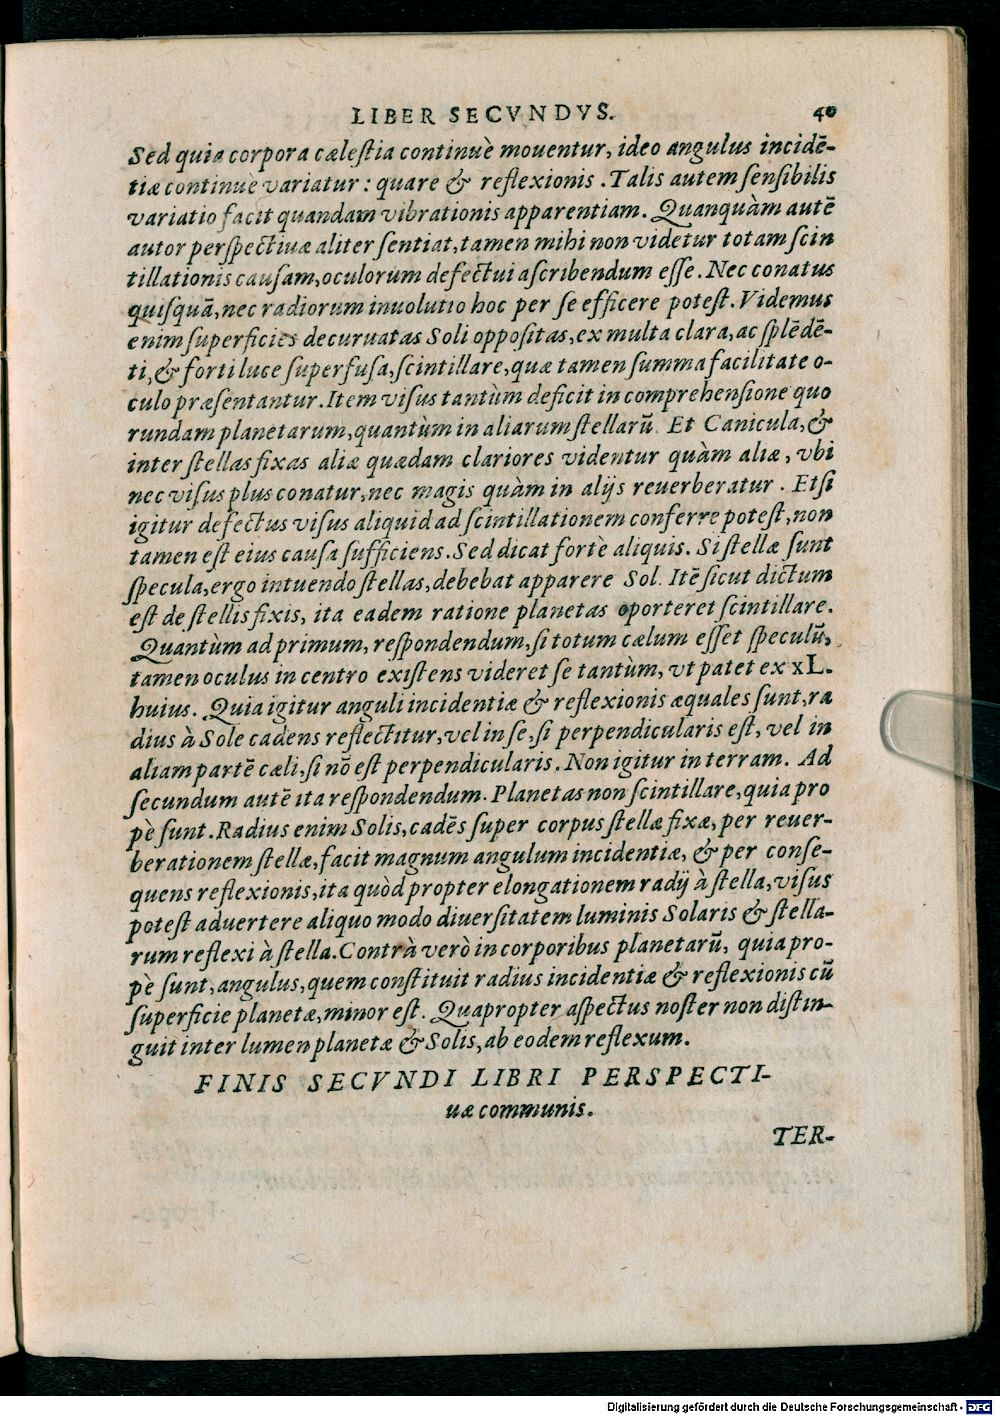 LIBER SECVNDVS. 40
Sed quia corpora cælestia continuè mouentur, ideo angulus incidē-
tiæ continuè variatur : quare & reflexionis . Talis autem sensibilis
variatio facit quandam vibrationis apparentiam. Quanquàm autē
autor perspectiuæ aliter sentiat, tamen mihi non videtur totam scin
tillationis causam, oculorum defectui ascribendum esse. Nec conatus
quisquā, nec radiorum inuolutio hoc per se efficere potest. Videmus
enim superficies decuruatas Soli oppositas, ex multa clara, ac splēdē-
ti, & forti luce superfusa, scintillare, quæ tamen summa facilitate o-
culo præsentantur. Item visus tantùm deficit in comprehensione quo
rundam planetarum, quantùm in aliarum stellarū. Et Canicula, &
inter stellas fixas aliæ quædam clariores videntur quàm aliæ, vbi
nec visus plus conatur, nec magis quàm in alijs reuerberatur . Etsi
igitur defectus visus aliquid ad scintillationem conferre potest, non
tamen est eius causa sufficiens. Sed dicat fortè aliquis. Si stellæ sunt
specula, ergo intuendo stellas, debebat apparere Sol. Itē sicut dictum
est de stellis fixis, ita eadem ratione planetas oporteret scintillare.
Quantùm ad primum, respondendum, si totum cælum esset speculū,
tamen oculus in centro existens videret se tantùm, vt patet ex xL.
huius. Quia igitur anguli incidentiæ & reflexionis æquales sunt, ra
dius à Sole cadens reflectitur, vel in se, si perpendicularis est, vel in
aliam partē cæli, si nō est perpendicularis. Non igitur in terram. Ad
secundum autē ita respondendum. Planetas non scintillare, quia pro
pè sunt. Radius enim Solis, cadēs super corpus stellæ fixæ, per reuer-
berationem stellæ, facit magnum angulum incidentiæ, & per conse-
quens reflexionis, ita quòd propter elongationem radij à stella, visus
potest aduertere aliquo modo diuersitatem luminis Solaris & stella-
rum reflexi à stella. Contrà verò in corporibus planetarū, quia pro-
pè sunt, angulus, quem constituit radius incidentiæ & reflexionis cū
superficie planetæ, minor est. Quapropter aspectus noster non distin-
guit inter lumen planetæ & Solis, ab eodem reflexum.
FINIS SECVNDI LIBRI PERSPECTI-
uæ communis.
TER-
Digitalisierung gefördert durch die Deutsche Forschungsgemeinschaft - DFG